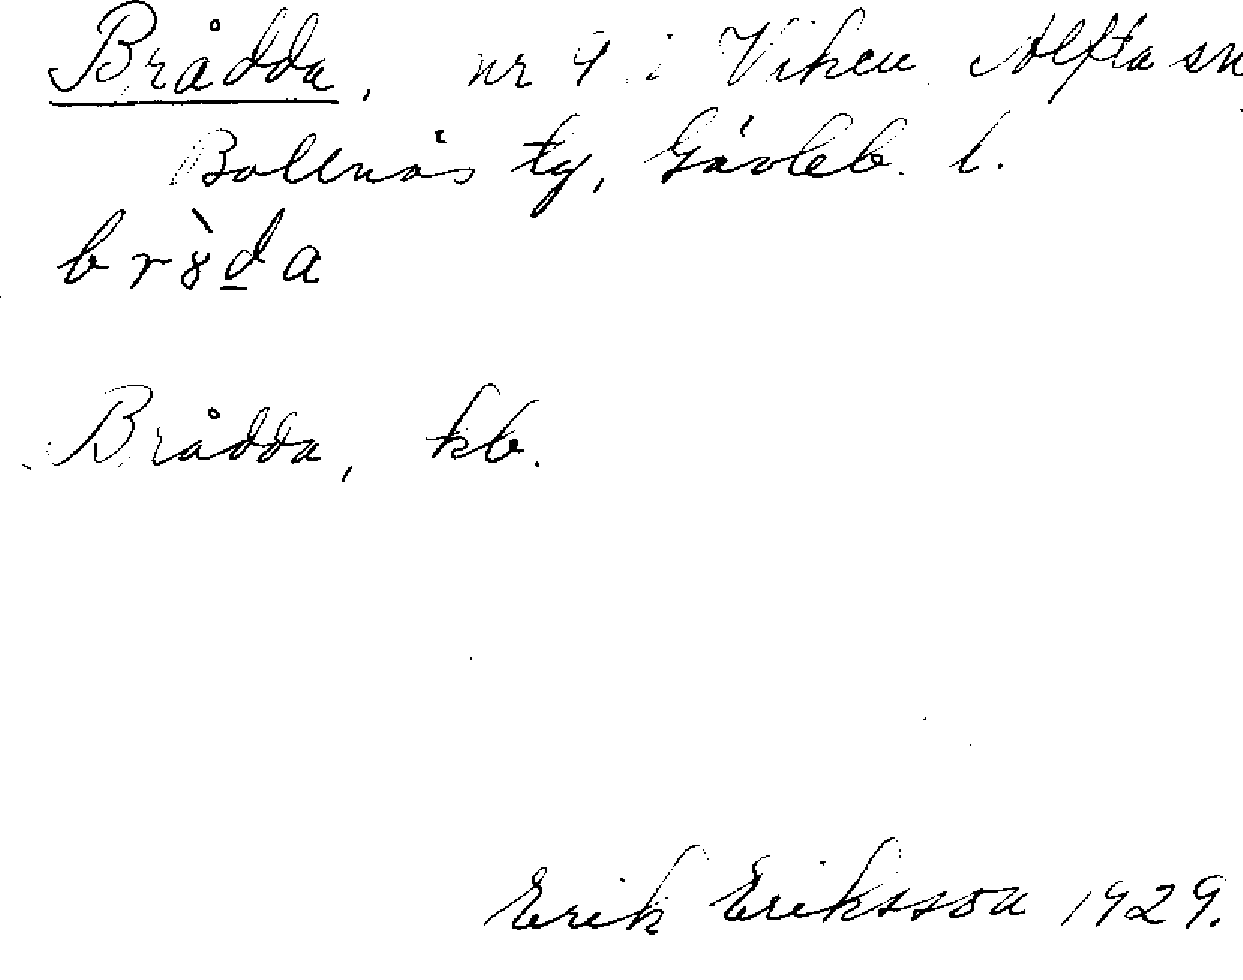 Brådda, nr 9 i Viken Alfta sn
Bollnäs tg, Gävleb. l.
br&#x300;ȣda
Brådda, kb.
Erik Eriksson 1929.